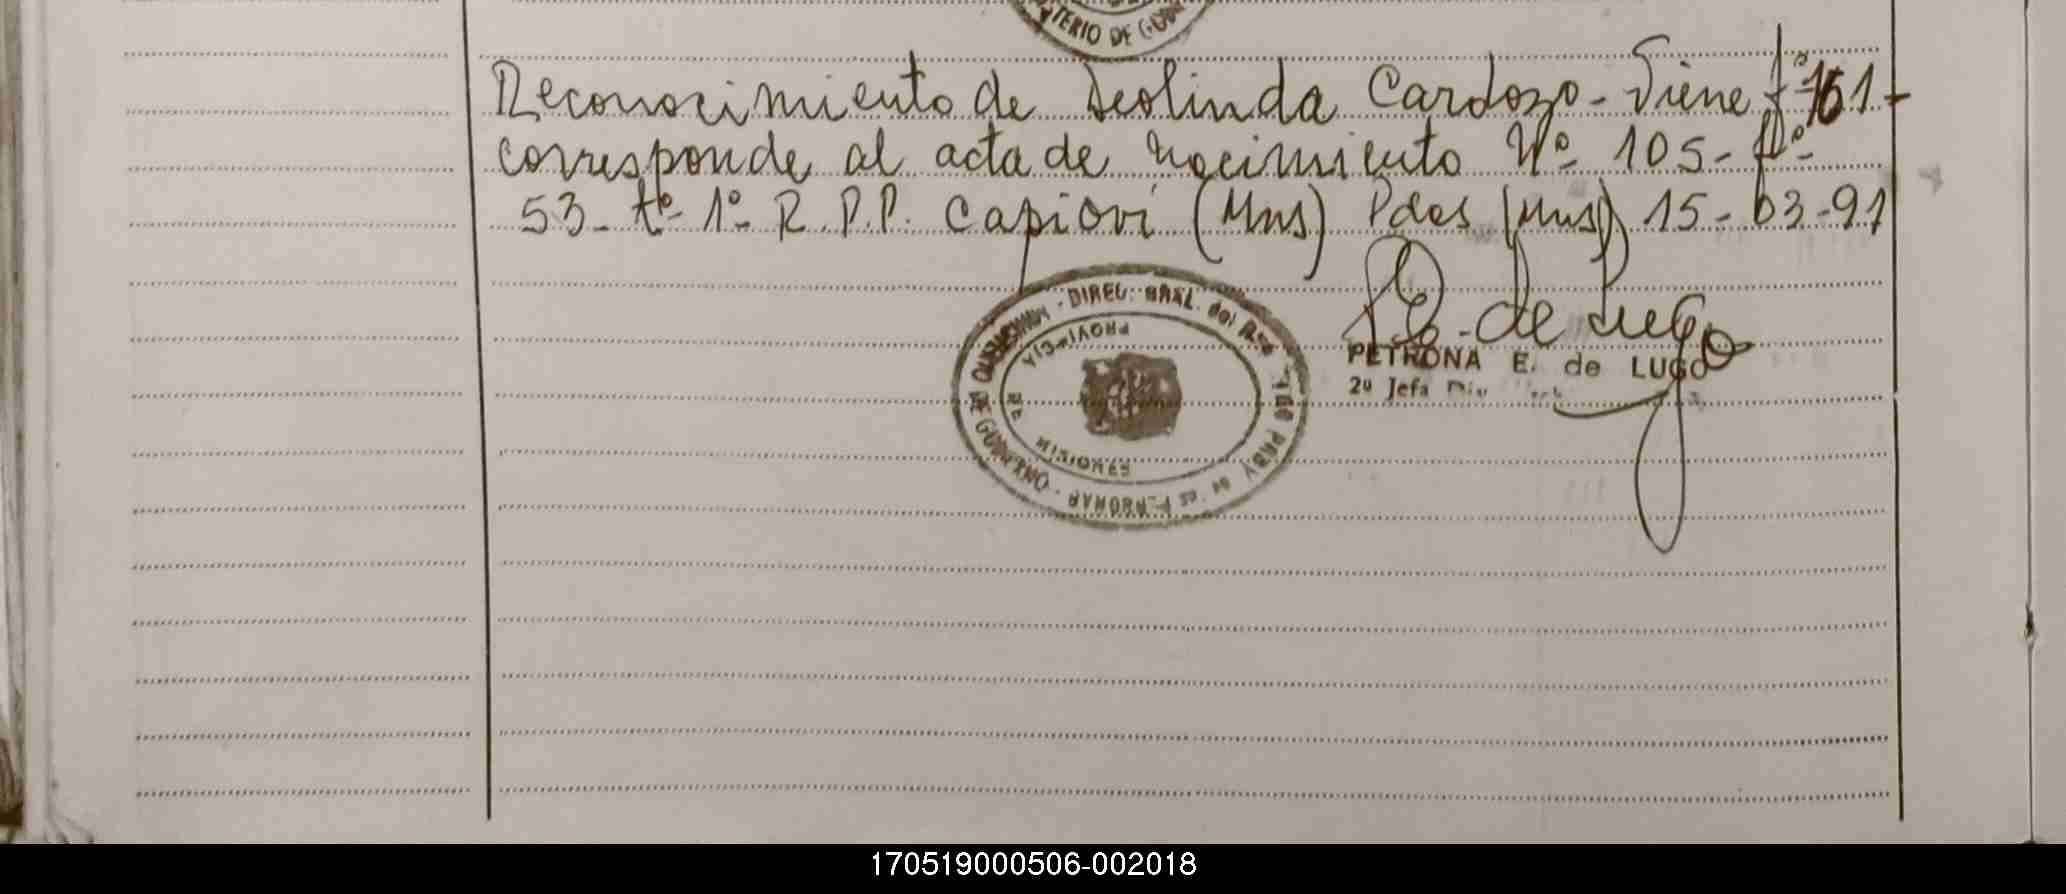 TERIO DE GOB
Reconocimiento de Deolinda Cardozo - Viene fº 161 -
corresponde al acta de nacimiento Nº 105 - fº -
53 - tº - 1º - R. P. P. Capioví (Mns) Pdas (Mns) 15 - 03 - 91
DIREC. GRAL. del
PROVINCIA
DE
MISIONES
DE GOBIERNO
de PERSONAS
P. E. de Lugo
PETRONA E. de LUGO
2º Jefa
170519000506-002018